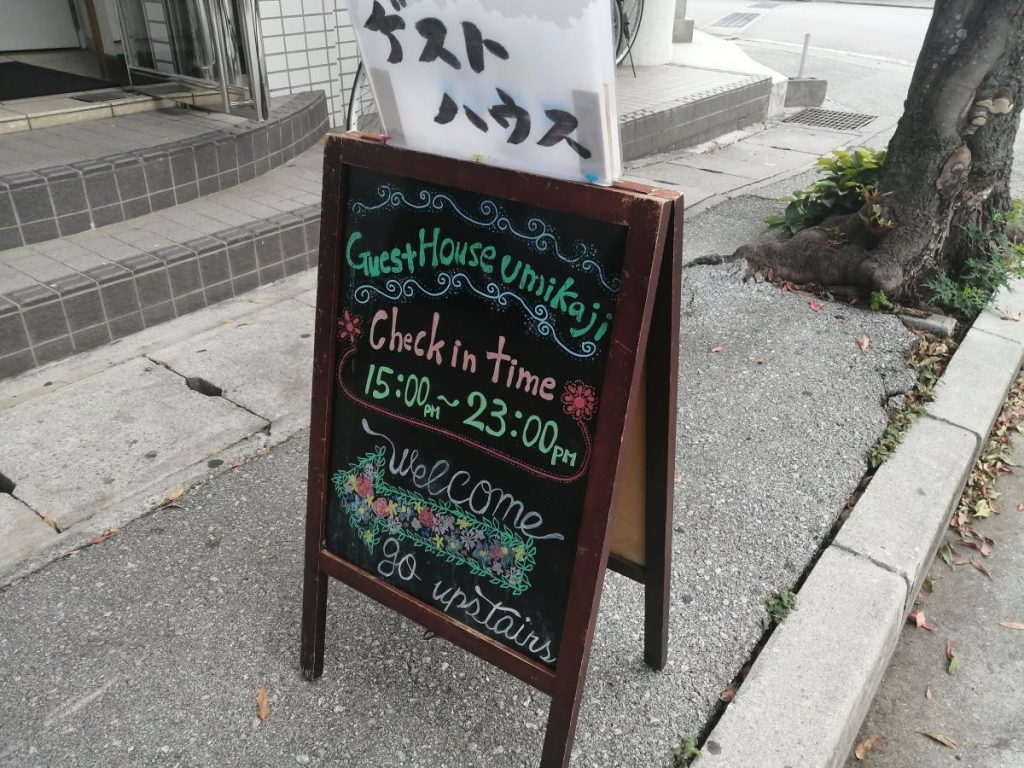 ゲスト
ハウス
Guest House umikaji
Check in time
15:00PM~23:00PM
Welcome
go upstairs